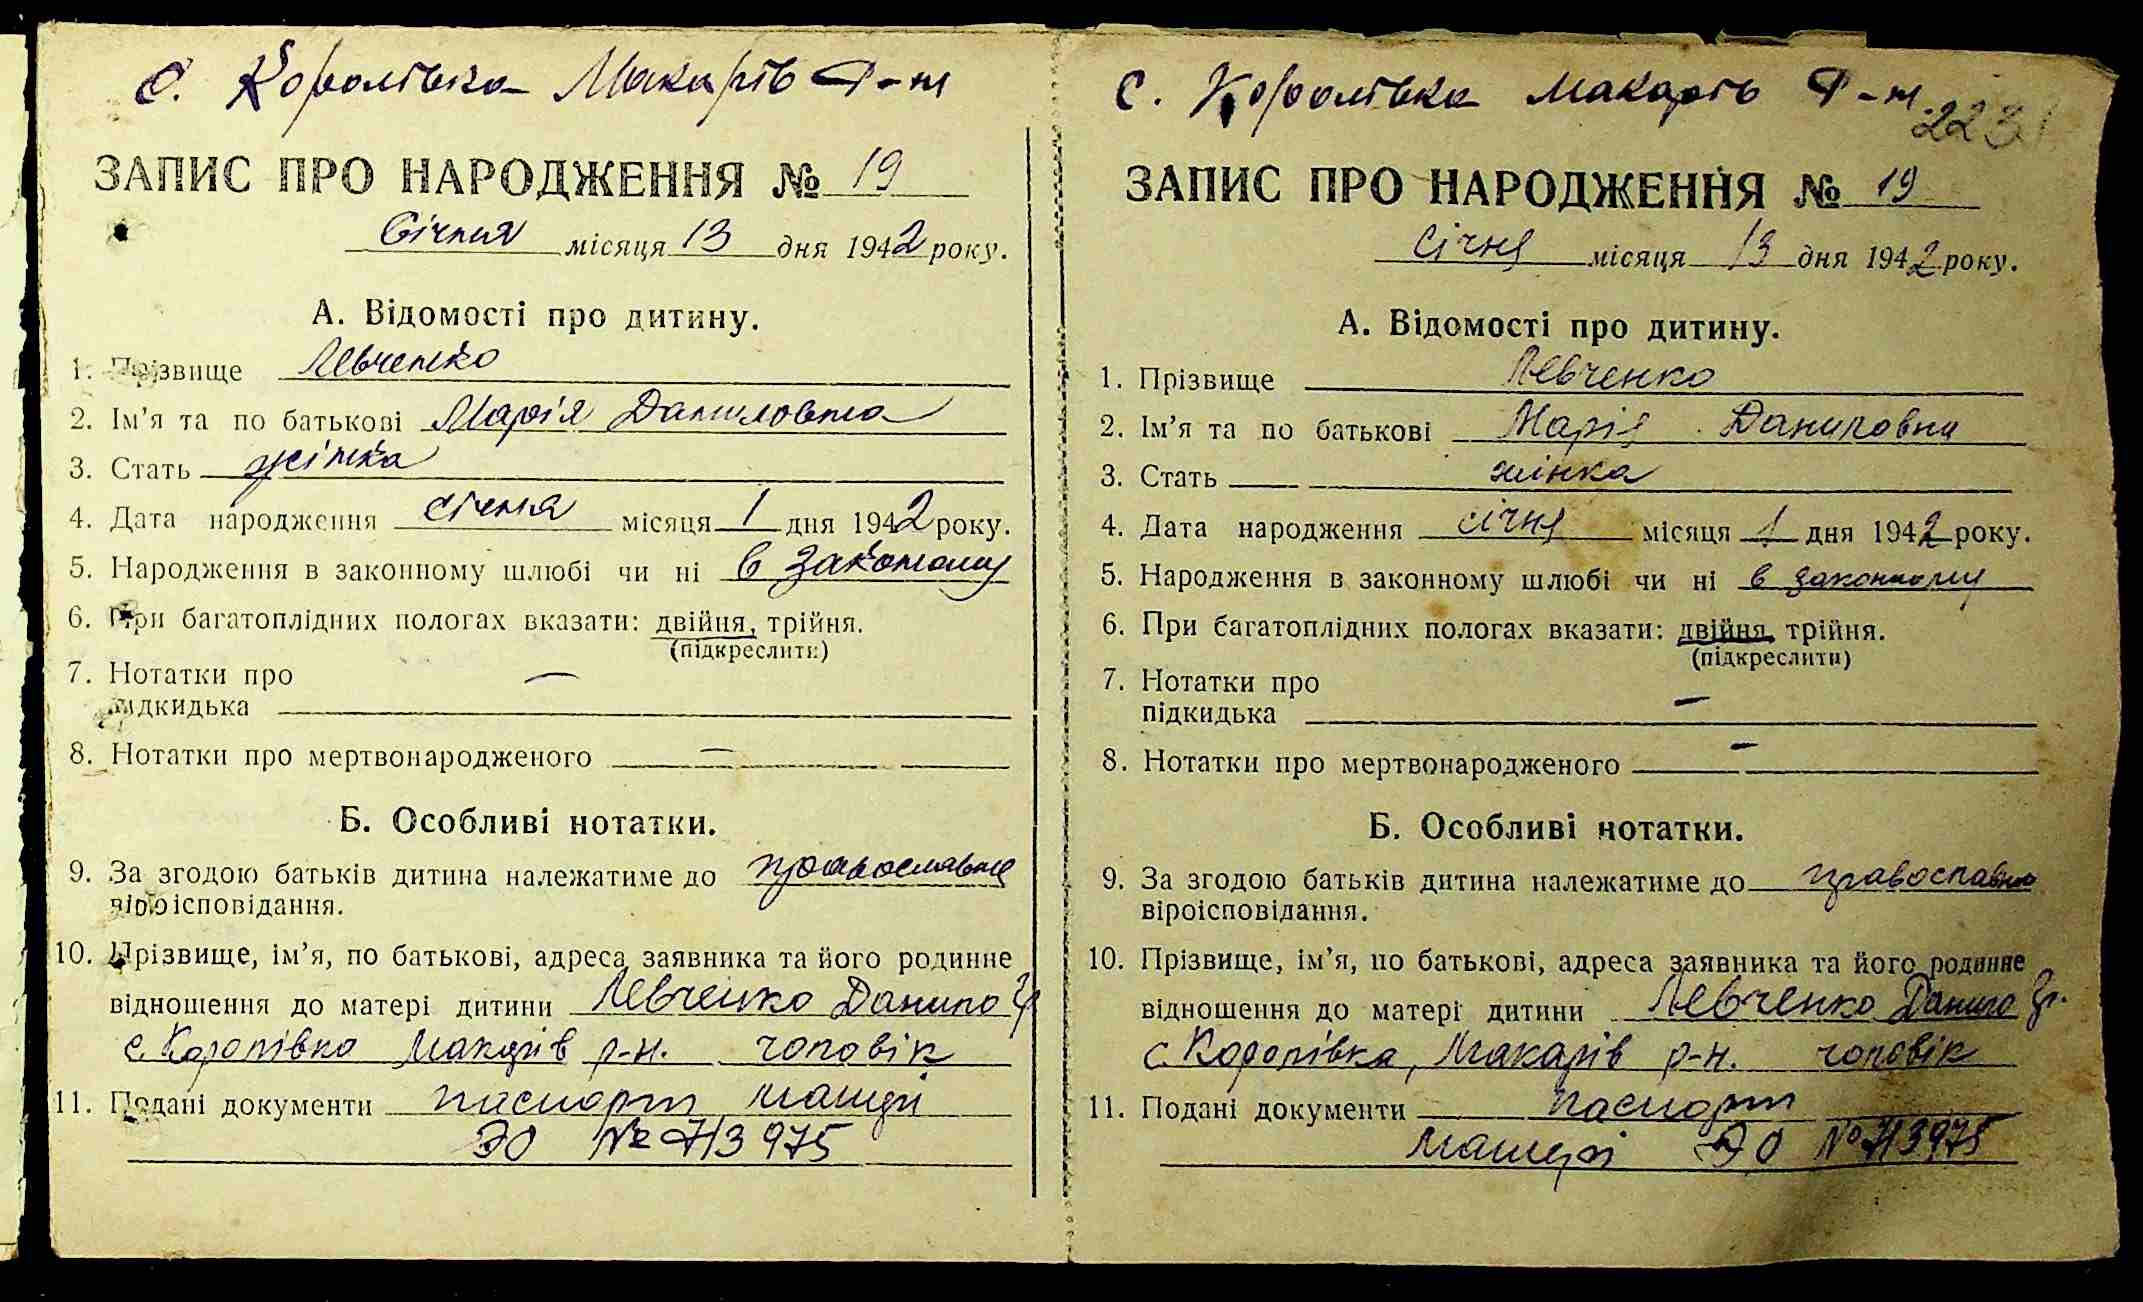 с. Королівка Макарів р-н
ЗАПИС ПРО НАРОДЖЕННЯ № 19
Січня місяця 13 дня 1942 року.
А. Відомості про дитину.
1. Прізвище Левченко
2. Ім’я та по батькові Марія Даниловна
3. Стать жінка
4. Дата народження січня місяця 1 дня 1942 року.
5. Народження в законному шлюбі чи ні в законому
6. При багатоплідних пологах вказати: двійня, трійня.
(підкреслити)
7. Нотатки про —
підкидька
8. Нотатки про мертвонародженого —
Б. Особливі нотатки.
9. За згодою батьків дитина належатиме до
віроісповідання.
10. Прізвище, ім’я, по батькові, адреса заявника та його родинне
відношення до матері дитини Левченко Данило Гр
с. Королівка Макарів р-н. чоловік
11. Подані документи паспорт матері
ЭО № 713975
с. Королівка Макарів р-н.
223
ЗАПИС ПРО НАРОДЖЕННЯ № 19
січня місяця 13 дня 1942 року.
А. Відомості про дитину.
1. Прізвище Левченко
2. Ім’я та по батькові Марія Даниловна
3. Стать жінка
4. Дата народження січня місяця 1 дня 1942 року.
5. Народження в законному шлюбі чи ні в законному
6. При багатоплідних пологах вказати: двійня, трійня.
(підкреслити)
7. Нотатки про —
підкидька
8. Нотатки про мертвонародженого —
Б. Особливі нотатки.
9. За згодою батьків дитина належатиме до
віроісповідання.
10. Прізвище, ім’я, по батькові, адреса заявника та його родинне
відношення до матері дитини Левченко Данило Гр.
с. Королівка, Макарів р-н. чоловік
11. Подані документи паспорт
матері ЭО № 713975